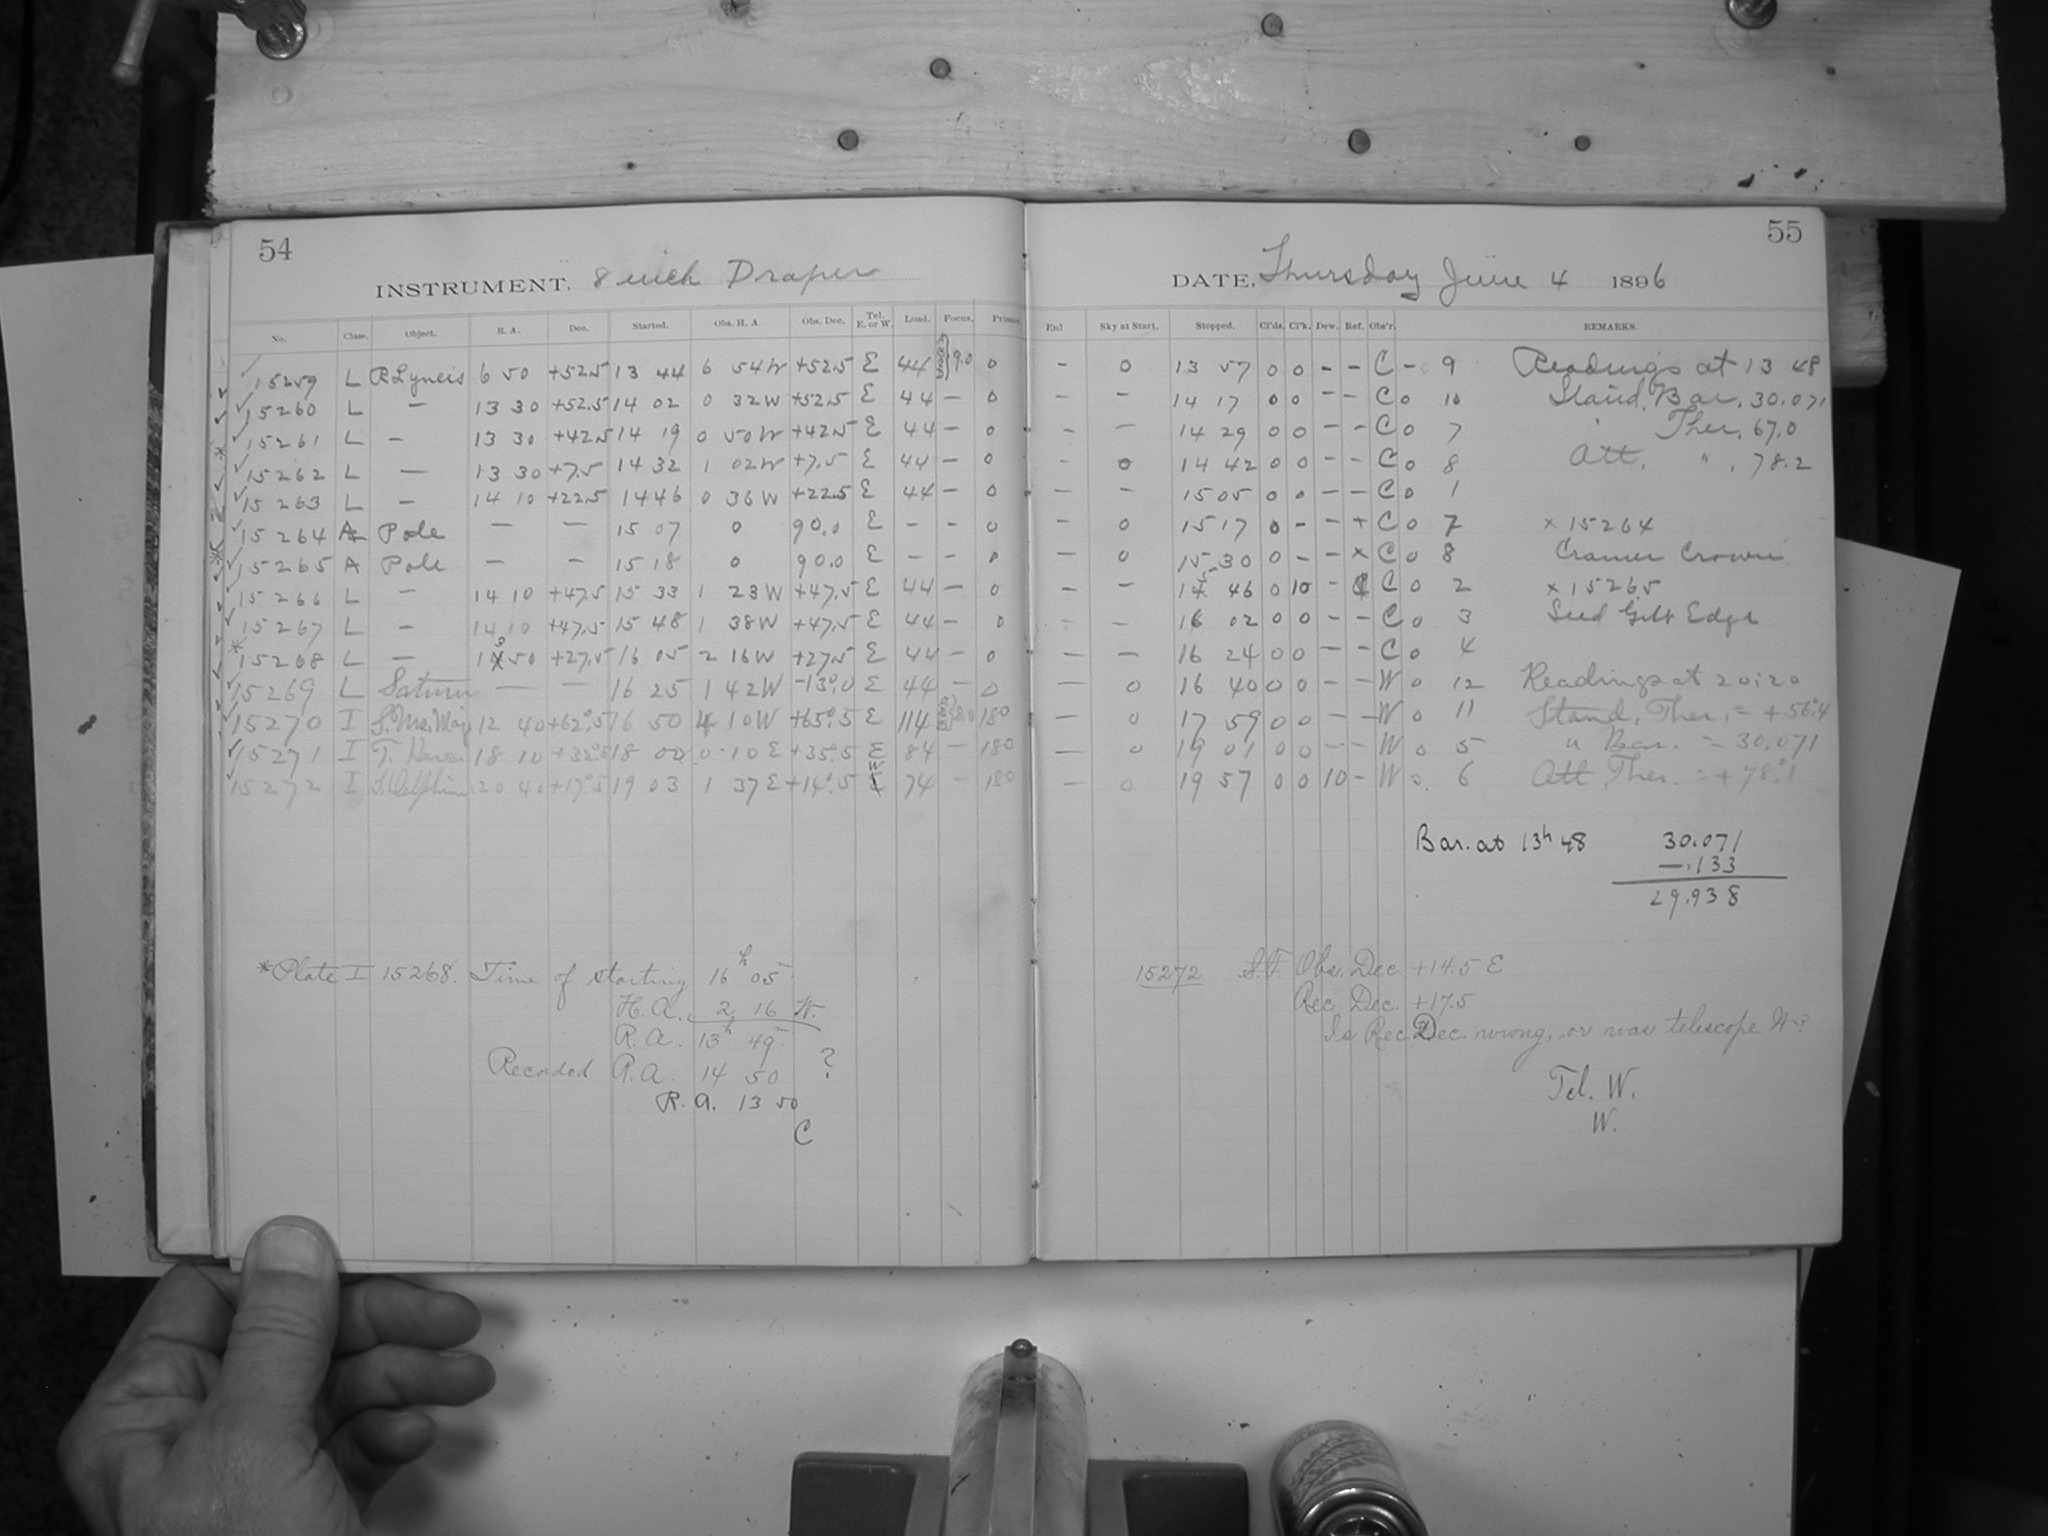 54
INSTRUMENT. 8 inch Draper
No. Class. Object. R. A. Dec. Started. Obs. H. A. Obs. Dec. Tel. E. or W. Load. Focus. Prisms
15259 L R Lyncis 6 50 +52.5 13 44 6 54W +52.5 E 44 9.0 0
15260 L — 13 30 +52.5 14 02 0 32W +52.5 E 44 — 0
15261 L — 13 30 +42.5 14 19 0 50W +42.5 E 44 — 0
15262 L — 13 30 +7.5 14 32 1 02W +7.5 E 44 — 0
15263 L — 14 10 +22.5 14 46 0 36W +22.5 E 44 — 0
15264 A Pole — — 15 07 0 90.0 E — — 0
15265 A Pole — — 15 18 0 90.0 E — — 0
15266 L — 14 10 +47.5 15 33 1 23W +47.5 E 44 — 0
15267 L — 14 10 +47.5 15 48 1 38W +47.5 E 44 — 0
*15268 L — 13 50 +27.5 16 05 2 16W +27.5 E 44 — 0
15269 L Saturn — — 16 25 1 42W -13°.0 E 44 — 0
15270 I S. Urs. Maj. 12 40 +62°.5 16 50 4 10W +65°.5 E 114 8.0 180
15271 I T. Herc. 18 10 +32°.5 18 00 0 10 E +35°.5 E 84 — 180
15272 I S. Delphini 20 40 +17°.5 19 03 1 37 E +14°.5 W 74 — 180
*Plate I 15268. Time of starting 16h 05
H. A. 2 16 W.
R. A. 13h 49
Recorded R. A. 14 50 ?
R. A. 13 50
C
55
DATE, Thursday June 4 1896
Enl Sky at Start. Stopped. Cl'ds. Cl'k. Dew. Ref. Obs'r. REMARKS.
— 0 13 57 0 0 - - C - 9 Readings at 13 48
— — 14 17 0 0 - - C 0 10 Stand. Bar. 30.071
— — 14 29 0 0 - - C 0 7 " Ther. 67.0
- 0 14 42 0 0 - - C 0 8 Att. " . 78.2
— — 15 05 0 0 - - C 0 1
— 0 15 17 0 - - + C 0 7 × 15264
— 0 15 30 0 - - × C 0 8 Cramer Crown
— — 15 46 0 10 - C 0 2 × 15265
— — 16 02 0 0 - - C 0 3 Seed Gilt Edge
— — 16 24 0 0 - - C 0 4
— 0 16 40 0 0 - - W 0 12 Readings at 20:20
— 0 17 59 0 0 - - W 0 11 Stand. Ther. = +56°.4
— 0 19 01 0 0 - - W 0 5 " Bar. = 30.071
— 0 19 57 0 0 10 - W 0 6 Att Ther. = +78°.1
Bar. at 13h 48 30.071
-.133
29.938
15272 S.F. Obs. Dec. +14.5 E
Rec. Dec. +17.5
Is Rec. Dec. wrong, or was telescope W?
Tel. W.
W.